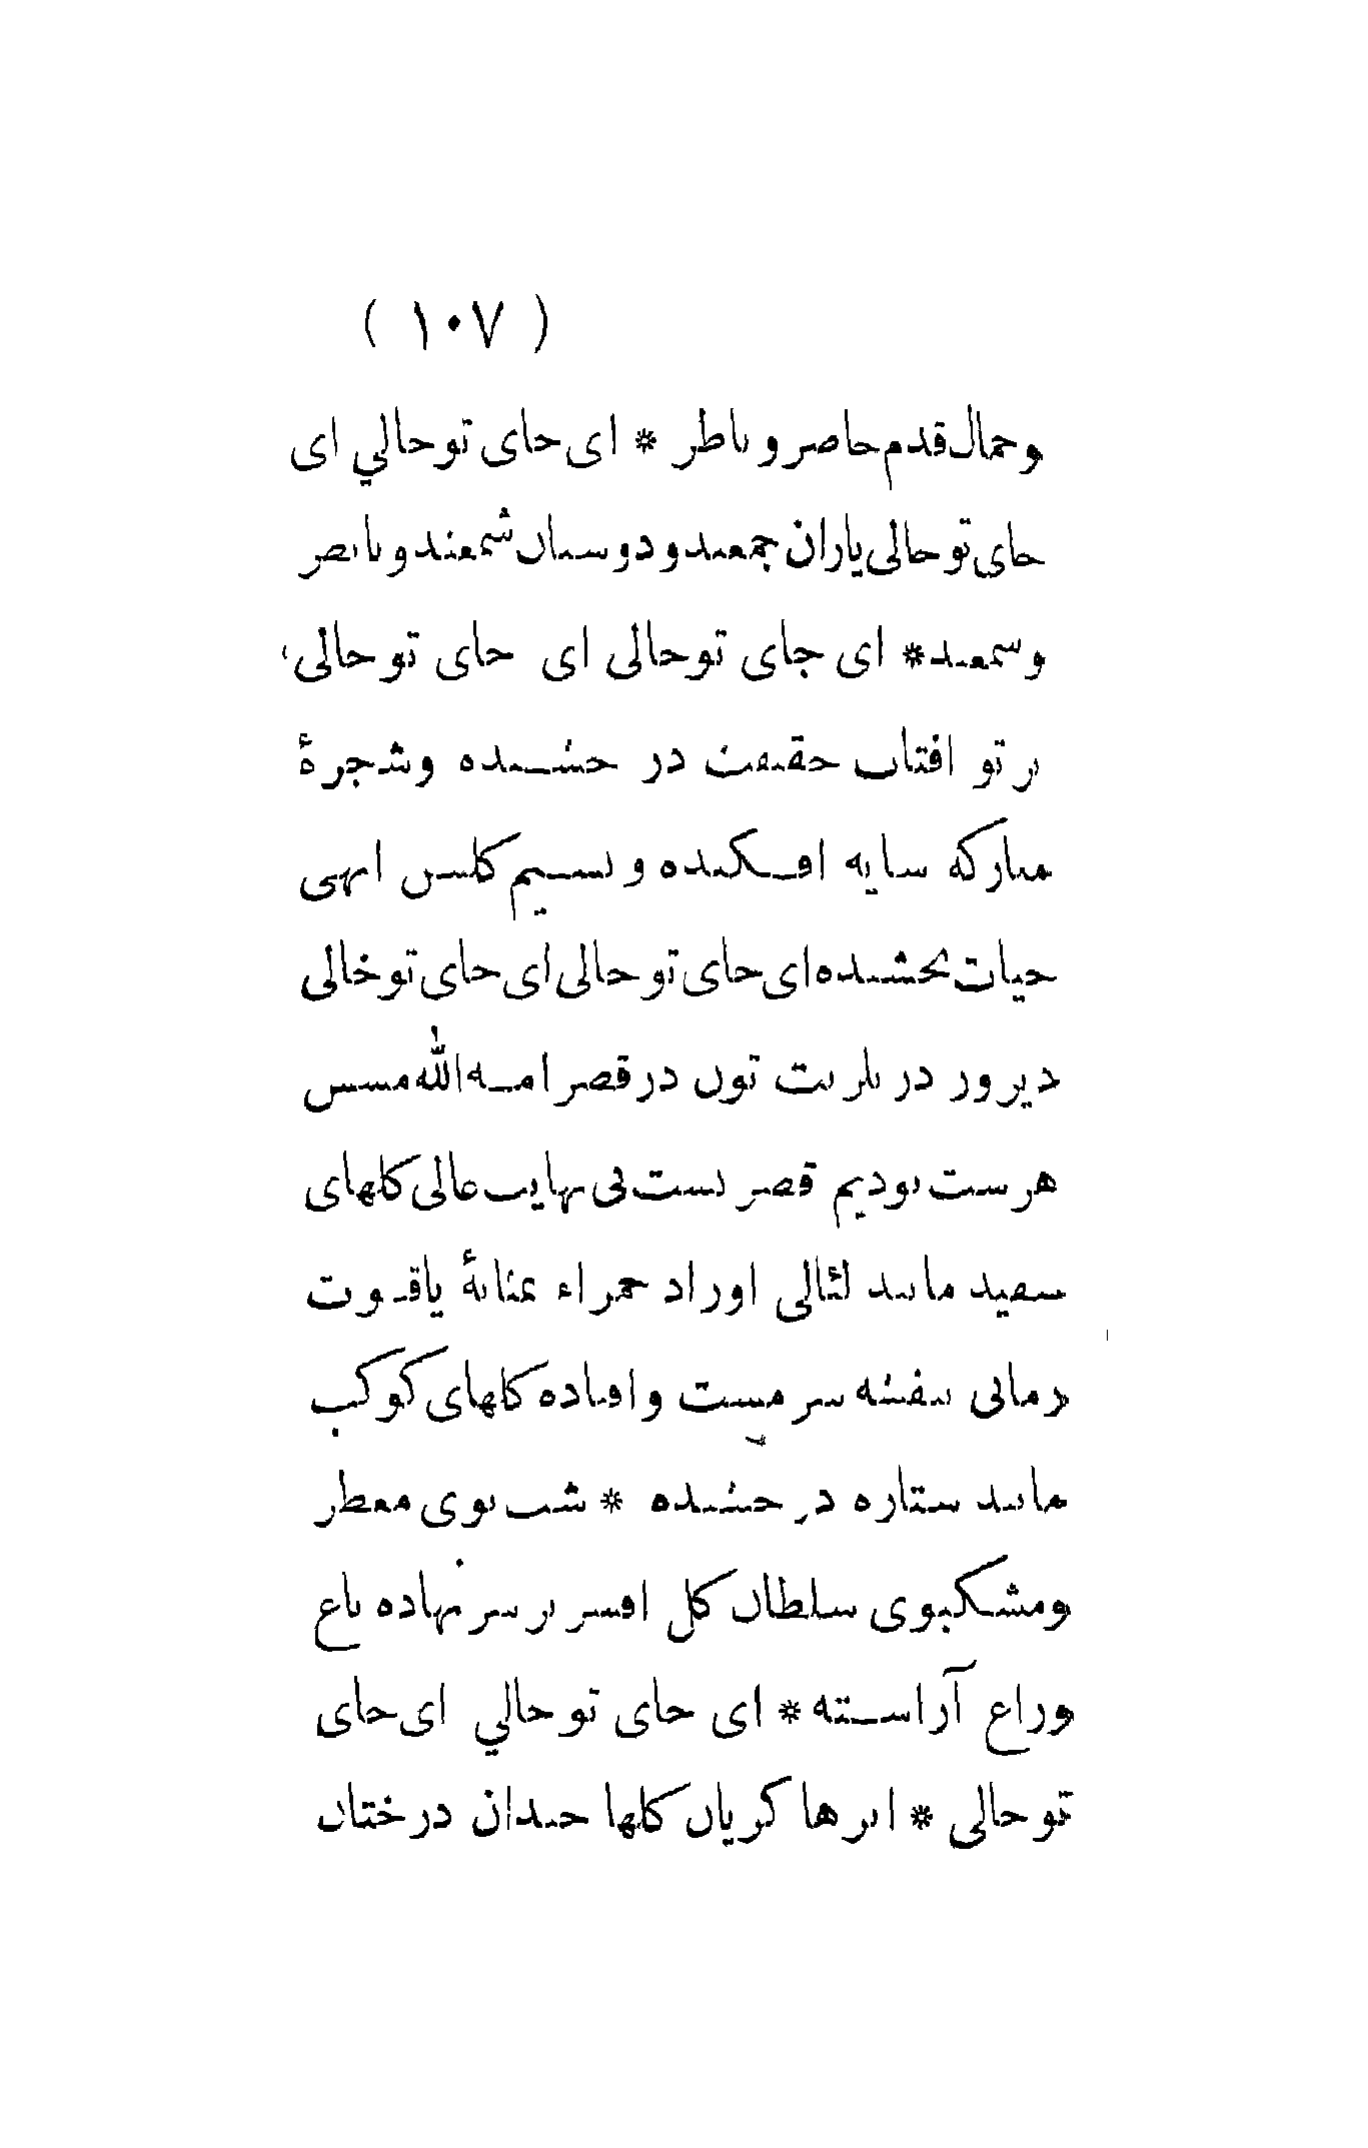 ( ١٠٧ )
وجمال قدم حاضر و ناظر * ای جای تو خالي ای
جای تو خالی یاران جمعند و دوستان شمعند و با بصر
و سمعند * ای جای تو خالی ای جای تو خالی
پرتو افتاب حقیقت در خشنده وشجرۀ
مبارکه سایه افکنده و نسیم گلشن ابهی
حیات بخشنده ای جای تو خالی ای جای تو خالی
دیروز در بلریت تون در قصر امة الله مسس
هرست بودیم قصریست بی نهایت عالی کلهای
سفید مانند لئالی اوراد حمراء بمثابۀ یاقوت
رمانی بنفشه سرمست و افتاده کلهای کوکب
مانند ستاره درخشنده * شب بوی معطر
ومشکبوی سلطان کل افسر بر سر نهاده باغ
وراغ آراسته * ای جای تو خالي ای جای
تو خالی * ابرها کریان کلها خندان درختان